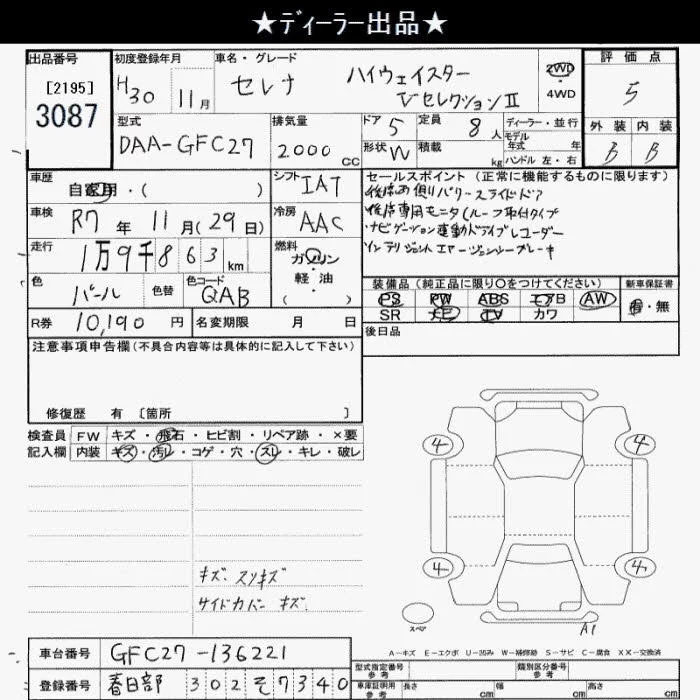 ★ディーラー出品★
出品番号 初度登録年月 車名・グレード 評価点
[2195]
3087
H30 11月
セレナ ハイウェイスター
Vセレクション Ⅱ
2WD
・
4WD
5
型式 排気量 ドア 5 定員 8人 ディーラー・並行
モデル
年式 年
外装 内装
DAA-GFC27 2000cc 形状 W 積載 kg ハンドル 左・右 B B
車歴 自家用・( ) シフト IAT
セールスポイント (正常に機能するものに限ります)
後席両側パワースライドドア
後席専用モニタ(ルーフ取付タイプ
ナビゲーション連動ドライブレコーダー
インテリジェント エマージェンシーブレーキ
車検 R7年 11月(29日) 冷房 AAC
走行 1万9千863km 燃料 ガソリン
・
軽油
( )
色 パール 色替 色コード QAB
装備品(純正品に限り○をつけてください) 新車保証書
PS PW ABS エアB AW 有・無
SR ナビ TV カワ
R券 10,190円 名変期限 月 日 後日品
注意事項申告欄(不具合内容等は具体的に記入して下さい)
修復歴 有 〔箇所 〕
検査員 FW キズ・飛石・ヒビ割・リペア跡・×要
記入欄 内装 キズ・汚レ・コゲ・穴・スレ・キレ・破レ
4 4
4 4
キズ. スリキズ
サイドカバー キズ.
スペア A1
A-キズ E-エクボ U-凹み W-補修跡 S-サビ C-腐食 XX-交換済
車台番号 GFC27-136221
型式指定番号
参考
類別区分番号
参考
登録番号 春日部 302 そ 7340
車庫証明用
参考
長さ cm 幅 cm 高さ cm